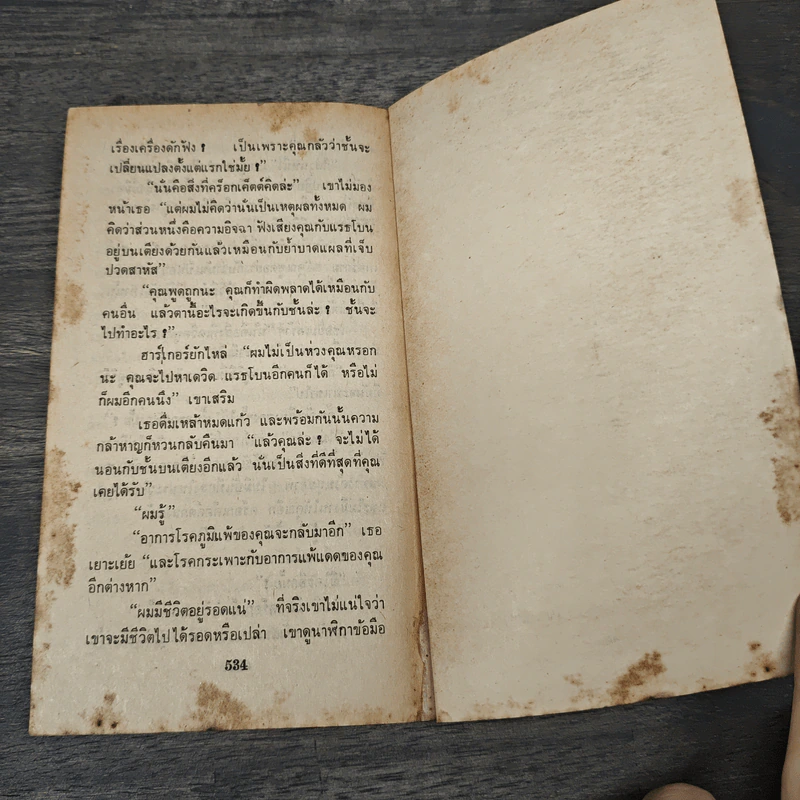 เรื่องเครื่องดักฟัง ? เป็นเพราะคุณกลัวว่าชั้นจะ
เปลี่ยนแปลงตั้งแต่แรกใช่มั้ย ?”
“นั่นคือสิ่งที่คร็อกเค็ตต์คิดล่ะ” เขาไม่มอง
หน้าเธอ “แต่ผมไม่คิดว่านั่นเป็นเหตุผลทั้งหมด ผม
คิดว่าส่วนหนึ่งคือความอิจฉา ฟังเสียงคุณกับแรธโบน
อยู่บนเตียงด้วยกันแล้วเหมือนกับย้ำบาดแผลที่เจ็บ
ปวดสาหัส”
“คุณพูดถูกนะ คุณก็ทำผิดพลาดได้เหมือนกับ
คนอื่น แล้วตานี้อะไรจะเกิดขึ้นกับชั้นล่ะ ? ชั้นจะ
ไปทำอะไร ?”
ฮาร์เกอร์ยักไหล่ “ผมไม่เป็นห่วงคุณหรอก
นะ คุณจะไปหาเดวิด แรธโบนอีกคนก็ได้ หรือไม่
ก็ผมอีกคนนึง” เขาเสริม
เธอดื่มเหล้าหมดแก้ว และพร้อมกันนั้นความ
กล้าหาญก็หวนกลับคืนมา “แล้วคุณล่ะ ? จะไม่ได้
นอนกับชั้นบนเตียงอีกแล้ว นั่นเป็นสิ่งที่ดีที่สุดที่คุณ
เคยได้รับ”
“ผมรู้”
“อาการโรคภูมิแพ้ของคุณจะกลับมาอีก” เธอ
เยาะเย้ย “และโรคกระเพาะกับอาการแพ้แดดของคุณ
อีกต่างหาก”
“ผมมีชีวิตอยู่รอดแน่” ที่จริงเขาไม่แน่ใจว่า
เขาจะมีชีวิตไปได้รอดหรือเปล่า เขาดูนาฬิกาข้อมือ
534